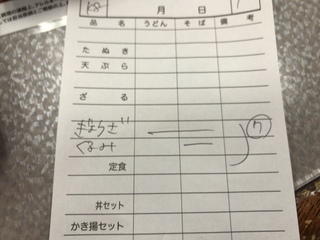 月 日
品 名 うどん そ ば 備 考
た ぬ き
天 ぷ ら
ざ る
きならざ 一
くるみ 二 7
定食
丼セット
かき揚セット